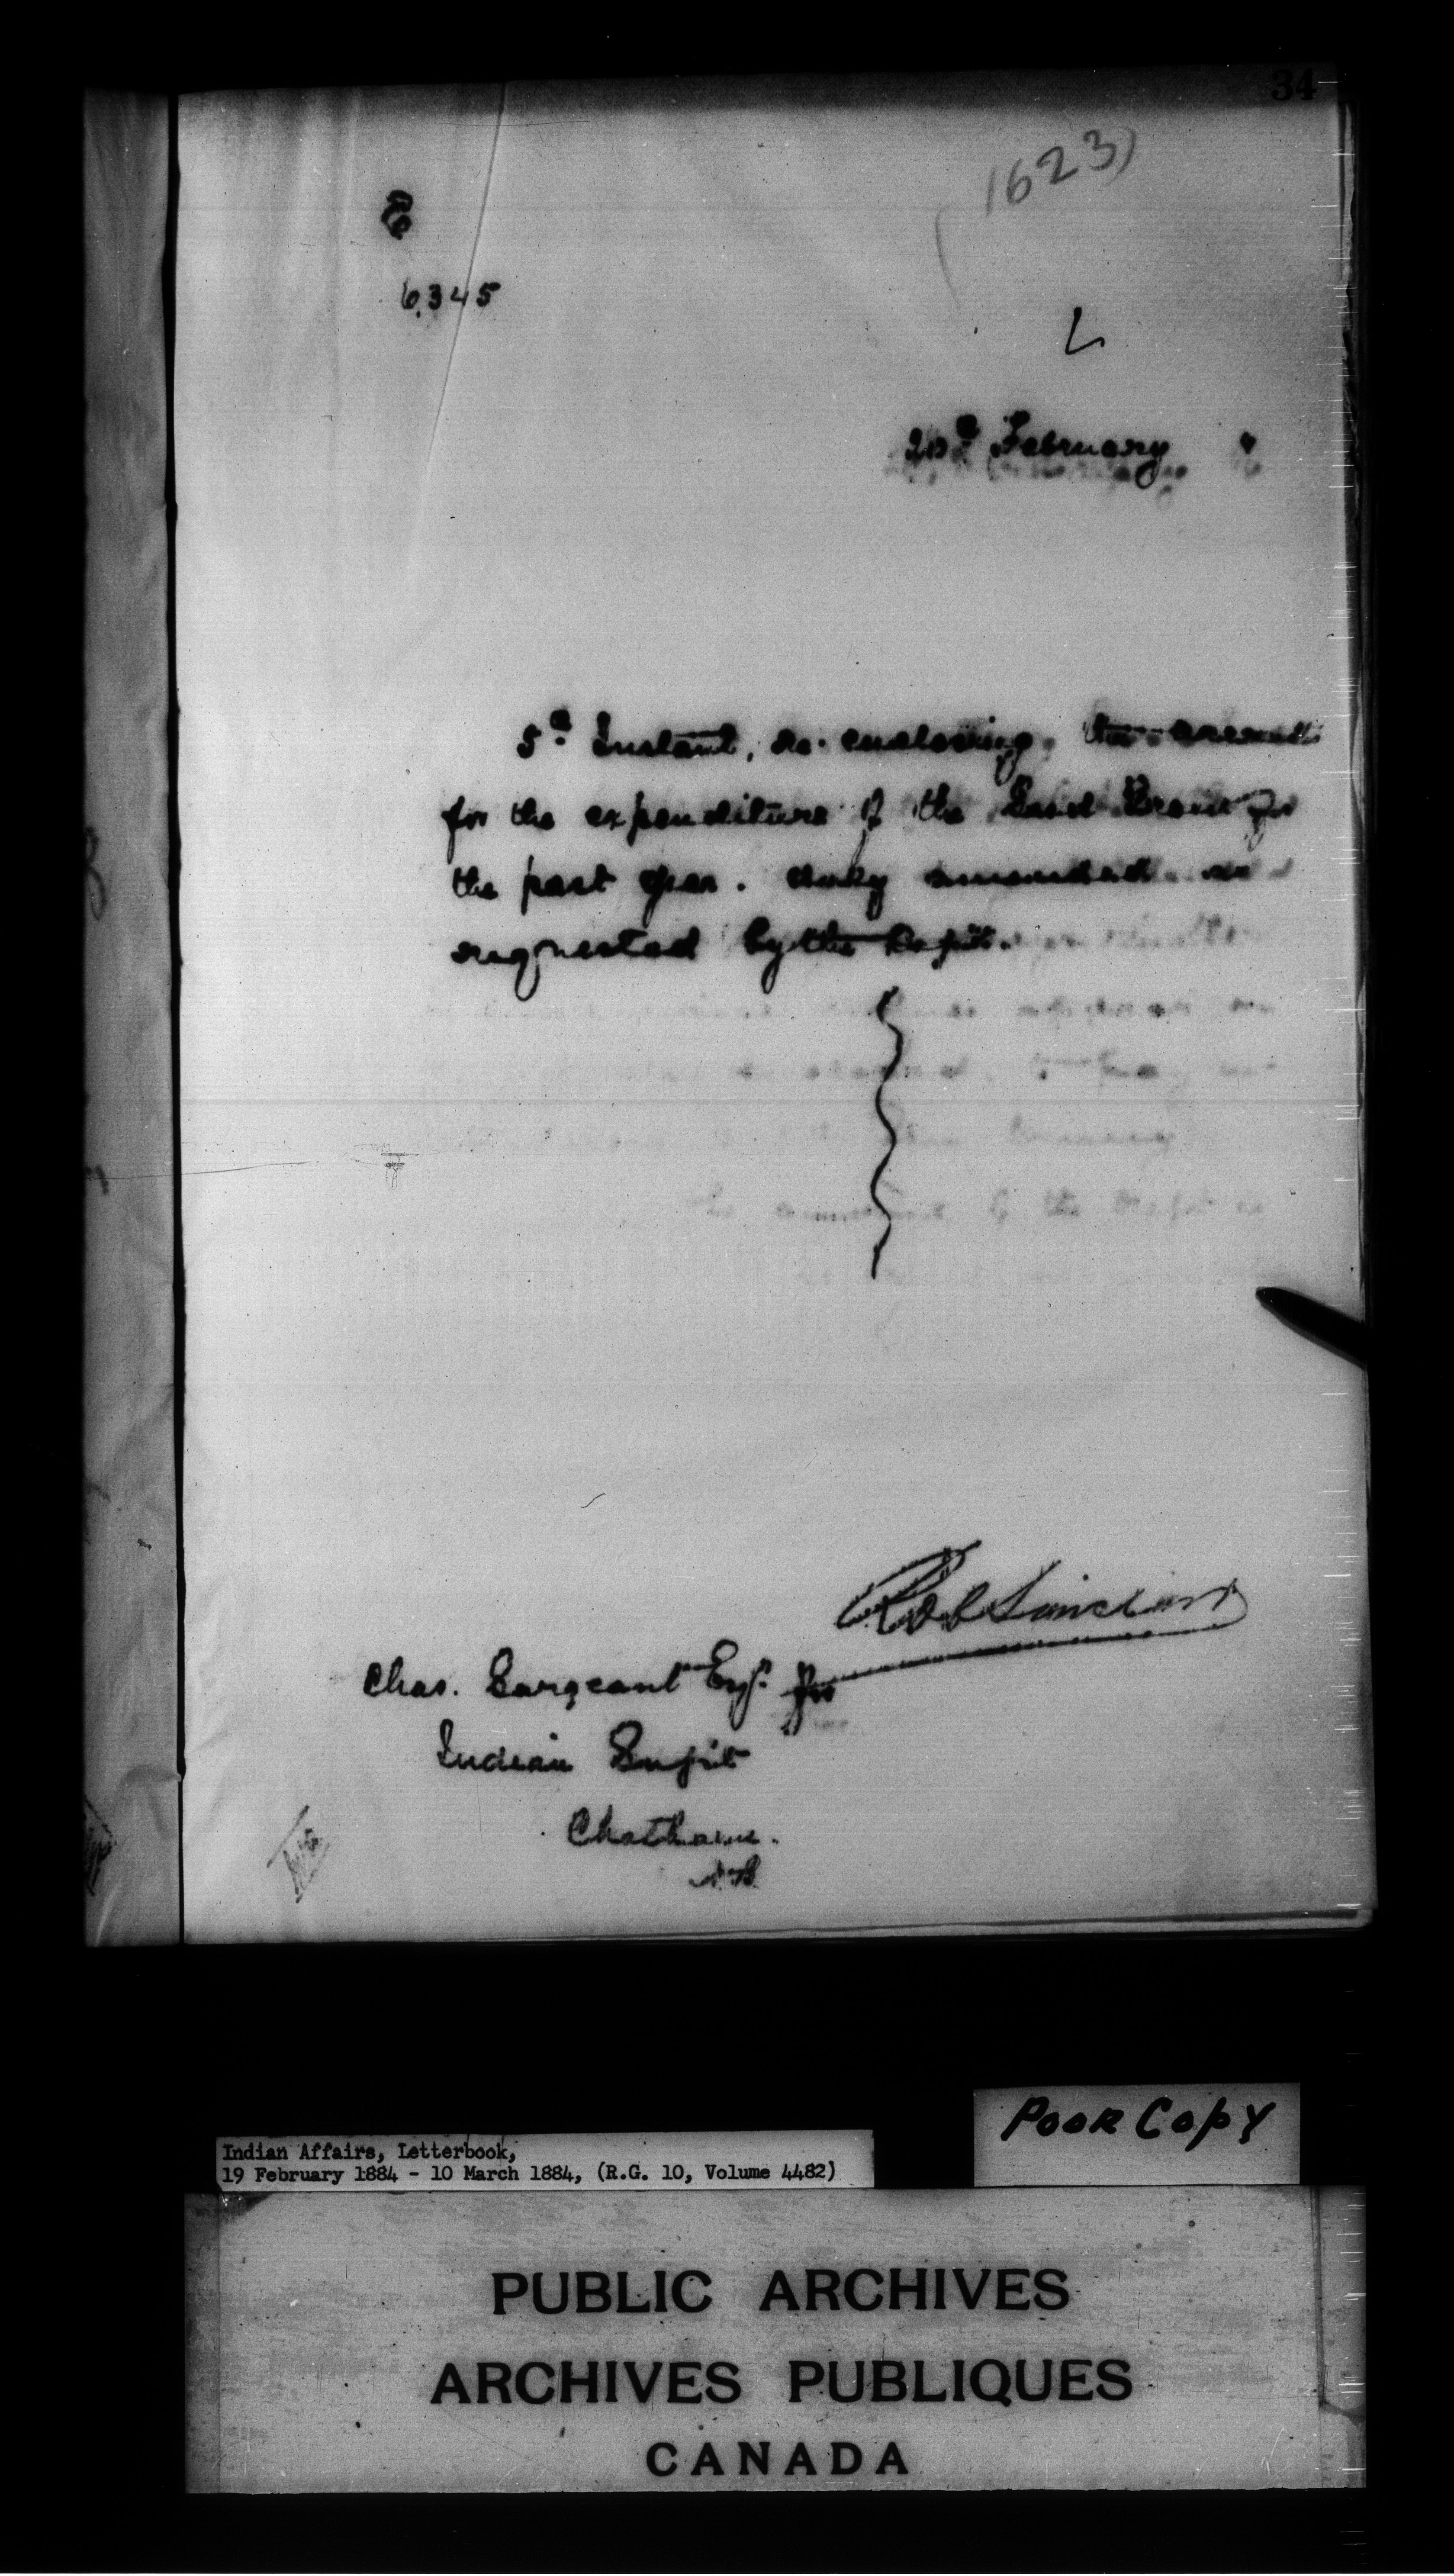 34
(1623)
6345
L
20th February
5th Instant, re-enclosing, the accounts
for the expenditure of the Seed Grant for
the past year, duly amended as
requested by the Dept.
Rob Sinclair
Chas. Sargeant Esqr. for
Indian Supt
Chatham.
N.B.
POOR COPY
Indian Affairs, Letterbook,
19 February 1884 - 10 March 1884, (R.G. 10, Volume 4482)
PUBLIC ARCHIVES
ARCHIVES PUBLIQUES
CANADA